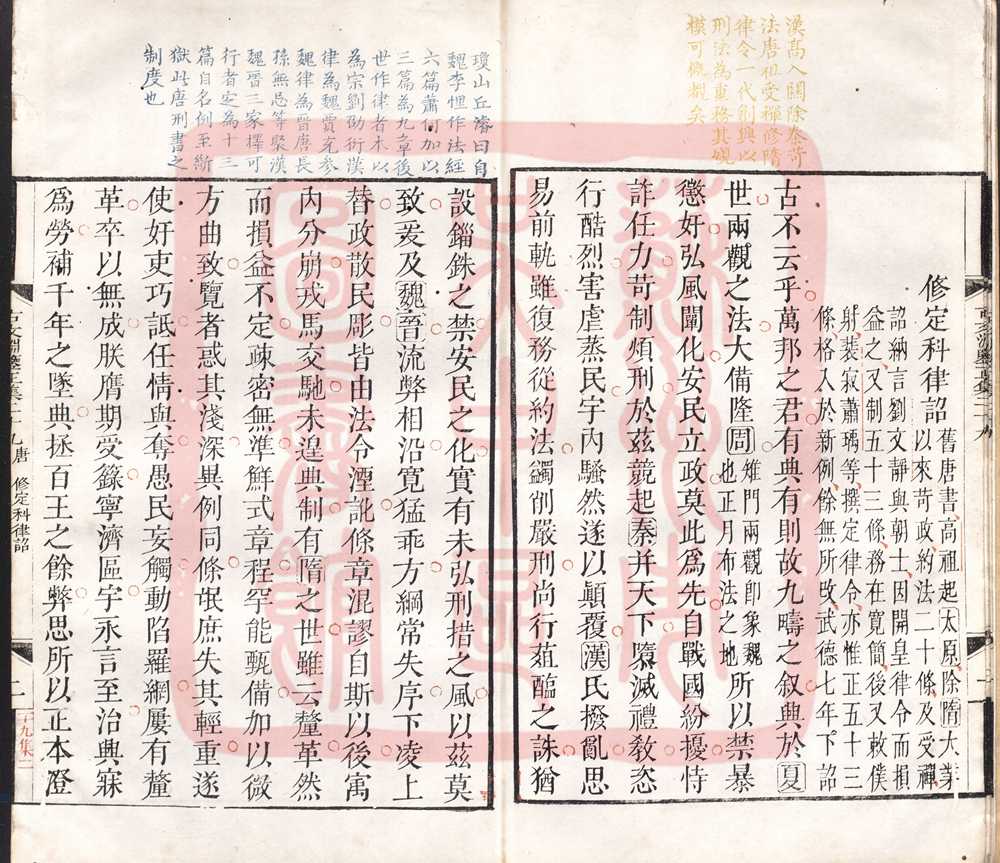 漢高入關除秦苛
法唐祖受禪修隋
律令一代創興以
刑法為重務其規
模可概覩矣
修定科律詔
舊唐書高祖起太原除隋大業
以來苛政約法二十條及受禪
詔納言劉文靜與朝士因開皇律令而損
益之又制五十三條務在寬簡後又敕僕
射裴寂蕭瑀等撰定律令亦惟正五十三
條格入於新例餘無所改武德七年下詔
古不云乎萬邦之君有典有則故九疇之叙興於夏
世兩觀之法大備隆周雉門兩觀即象魏也正月布法之地所以禁暴
懲奸弘風闡化安民立政莫此爲先自戰國紛擾恃
詐任力苛制煩刑於茲競起秦并天下隳滅禮教恣
行酷烈害虐蒸民宇內騷然遂以顛覆漢氏撥亂思
易前軌雖復務從約法蠲削嚴刑尚行葅醢之誅猶
瓊山丘濬曰自
魏李悝作法經
六篇蕭何加以
三篇為九章後
世作律者本以
為宗劉劭衍漢
律為魏賈充參
魏律為晉唐長
孫無忌等聚漢
魏晉三家擇可
行者定為十三
篇自名例至斷
獄此唐刑書之
制度也
設錙銖之禁安民之化實有未弘刑措之風以茲莫
致爰及魏晉流弊相沿寬猛乖方綱常失序下凌上
替政散民彫皆由法令湮訛條章混謬自斯以後寓
內分崩戎馬交馳未遑典制有隋之世雖云釐革然
而損益不定疎密無準鮮式章程罕能甄備加以微
方曲致覽者惑其淺深異例同條氓庶失其輕重遂
使奸吏巧詆任情與奪愚民妄觸動陷羅網屢有釐
革卒以無成朕膺期受籙寧濟區宇永言至治興寐
爲勞補千年之墜典拯百王之餘弊思所以正本澄
古文淵鑒正集二十九唐 修定科律詔
二
二十九集